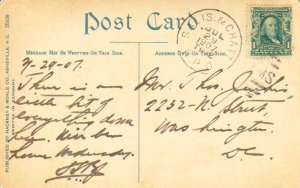 Post Card
MESSAGE MAY BE WRITTEN ON THIS SIDE.
ADDRESS ONLY ON THIS SIDE.
7-29-07.
There is a
little bit of
everything down
here. Will be
home Wednesday.
Mr. Thos.
2232-N Street
Washington
D.C.
JUL
1907
PUBLISHED BY HACKNEY & MOALE CO., ASHEVILLE, N.C.